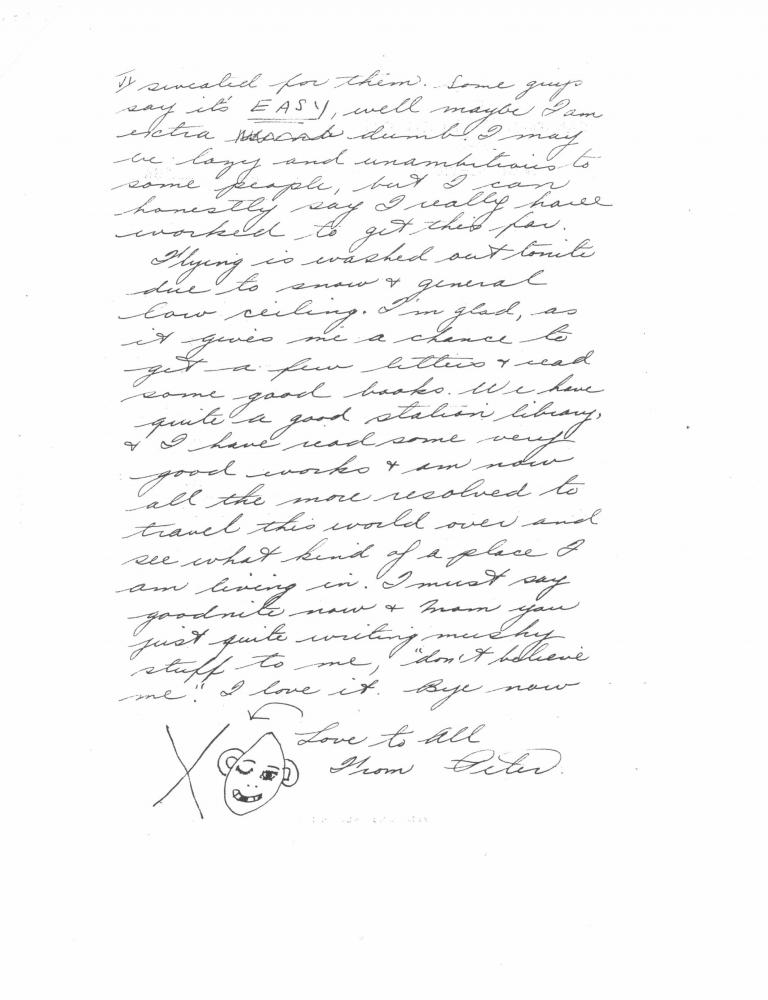 I sweated for them. Some guys
say it's EASY, well maybe I am
extra dumb. I may
be lazy and unambitious to
some people, but I can
honestly say I really have
worked to get this far.
Flying is washed out tonite
due to snow & general
low ceiling. I'm glad, as
it gives me a chance to
get a few letters & read
some good books. We have
quite a good station library,
& I have read some very
good works & am now
all the more resolved to
travel this world over and
see what kind of a place I
am living in. I must say
goodnite now & Mom you
just quite writing mushy
stuff to me, "don't believe
me". I love it. Bye now
X
Love to All
From Peter.